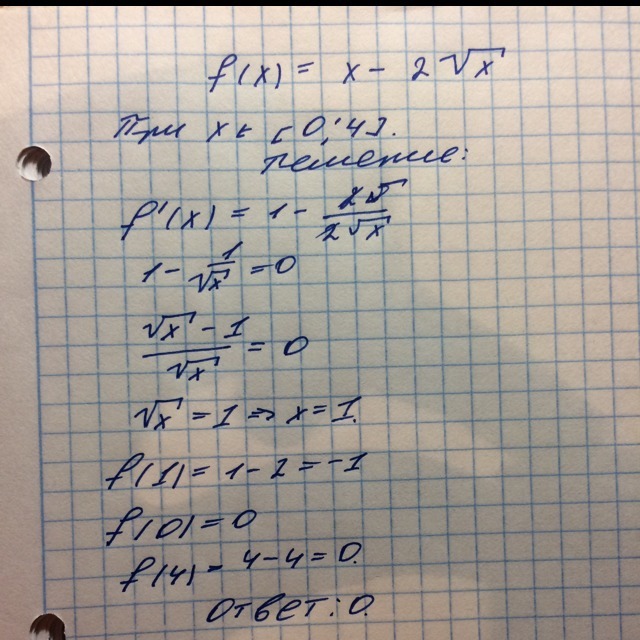 f(x) = x - 2√x
При x ∈ [0; 4].
Решение:
f'(x) = 1 - 2/2√x
1 - 1/√x = 0
(√x - 1)/√x = 0
√x = 1 => x = 1.
f(1) = 1 - 2 = -1
f(0) = 0
f(4) = 4 - 4 = 0.
Ответ: 0.